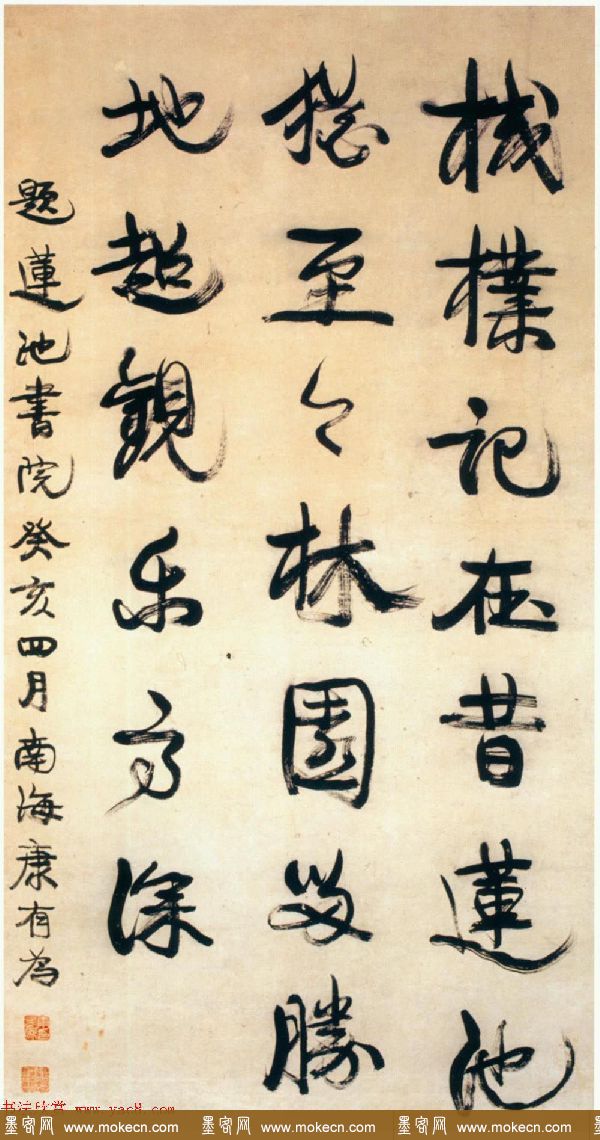 棫樸記在昔蓮池
猶至今林園留勝
地超觀乐高深
題蓮池書院癸亥四月南海康有為
书法欣赏 www.yac8.com
墨客网 www.mokecn.com 墨客网 www.mokecn.com 墨客网 www.mokecn.com